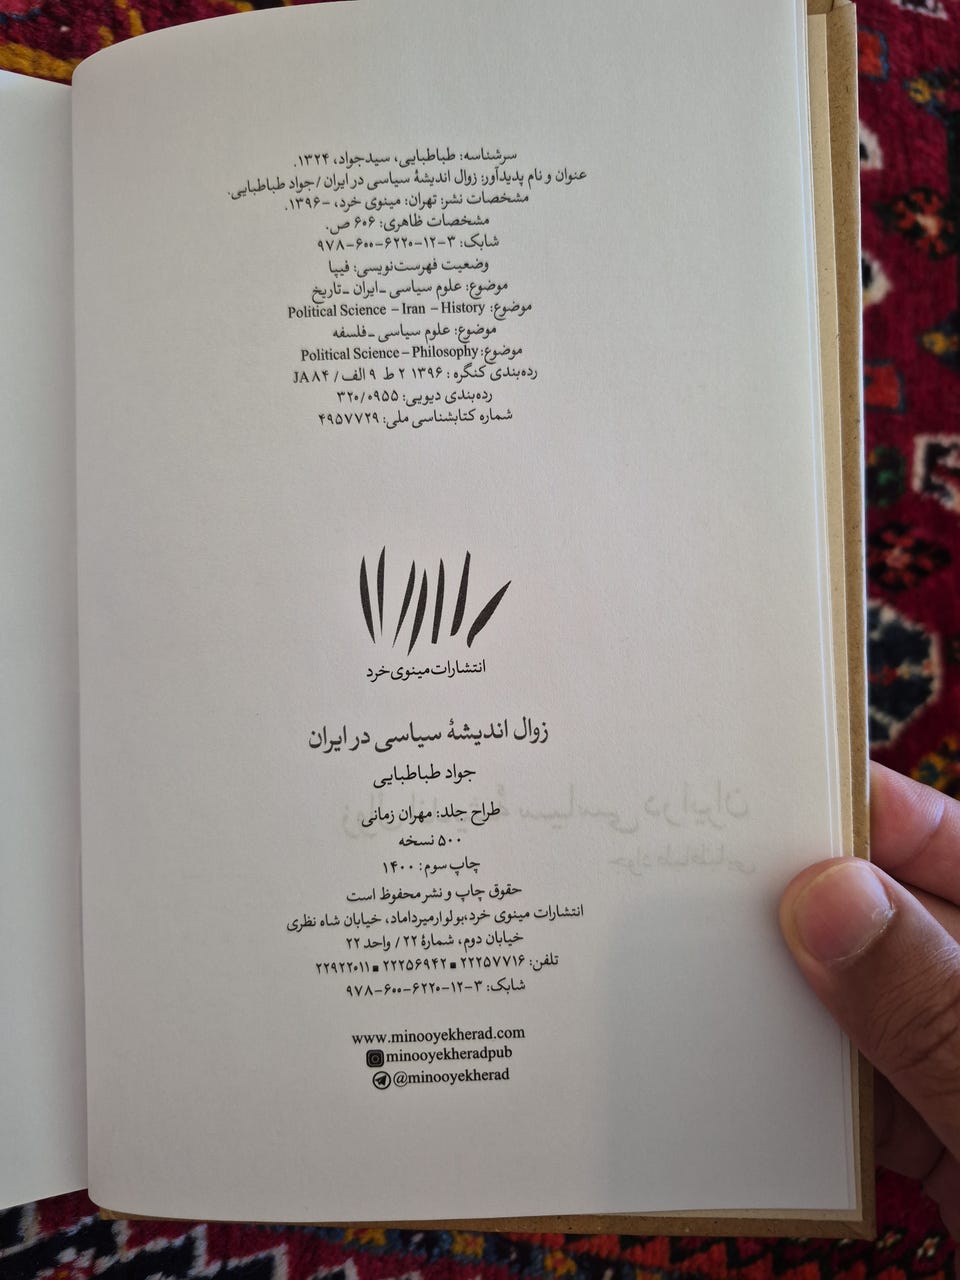 سرشناسه: طباطبایی، سیدجواد، ۱۳۲۴.
عنوان و نام پدیدآور: زوال اندیشهٔ سیاسی در ایران / جواد طباطبایی.
مشخصات نشر: تهران: مینوی خرد، -۱۳۹۶.
مشخصات ظاهری: ۶۰۶ ص.
شابک: ۳-۱۲-۶۲۲۰-۶۰۰-۹۷۸
وضعیت فهرست‌نویسی: فیپا
موضوع: علوم سیاسی ـ ایران ـ تاریخ
موضوع: Political Science – Iran – History
موضوع: علوم سیاسی ـ فلسفه
موضوع: Political Science – Philosophy
رده‌بندی کنگره: ۱۳۹۶ ۲ ط ۹ الف / JA ۸۴
رده‌بندی دیویی: ۳۲۰/۰۹۵۵
شماره کتابشناسی ملی: ۴۹۵۷۷۲۹
انتشارات مینوی خرد
زوال اندیشهٔ سیاسی در ایران
جواد طباطبایی
طراح جلد: مهران زمانی
۵۰۰ نسخه
چاپ سوم: ۱۴۰۰
حقوق چاپ و نشر محفوظ است
انتشارات مینوی خرد،بولوار میرداماد، خیابان شاه نظری
خیابان دوم، شمارهٔ ۲۲ / واحد ۲۲
تلفن: ۲۲۲۵۷۷۱۶ ■ ۲۲۲۵۶۹۴۲ ■ ۲۲۹۲۲۰۱۱
شابک: ۳-۱۲-۶۲۲۰-۶۰۰-۹۷۸
www.minooyekherad.com
minooyekheradpub
@minooyekherad